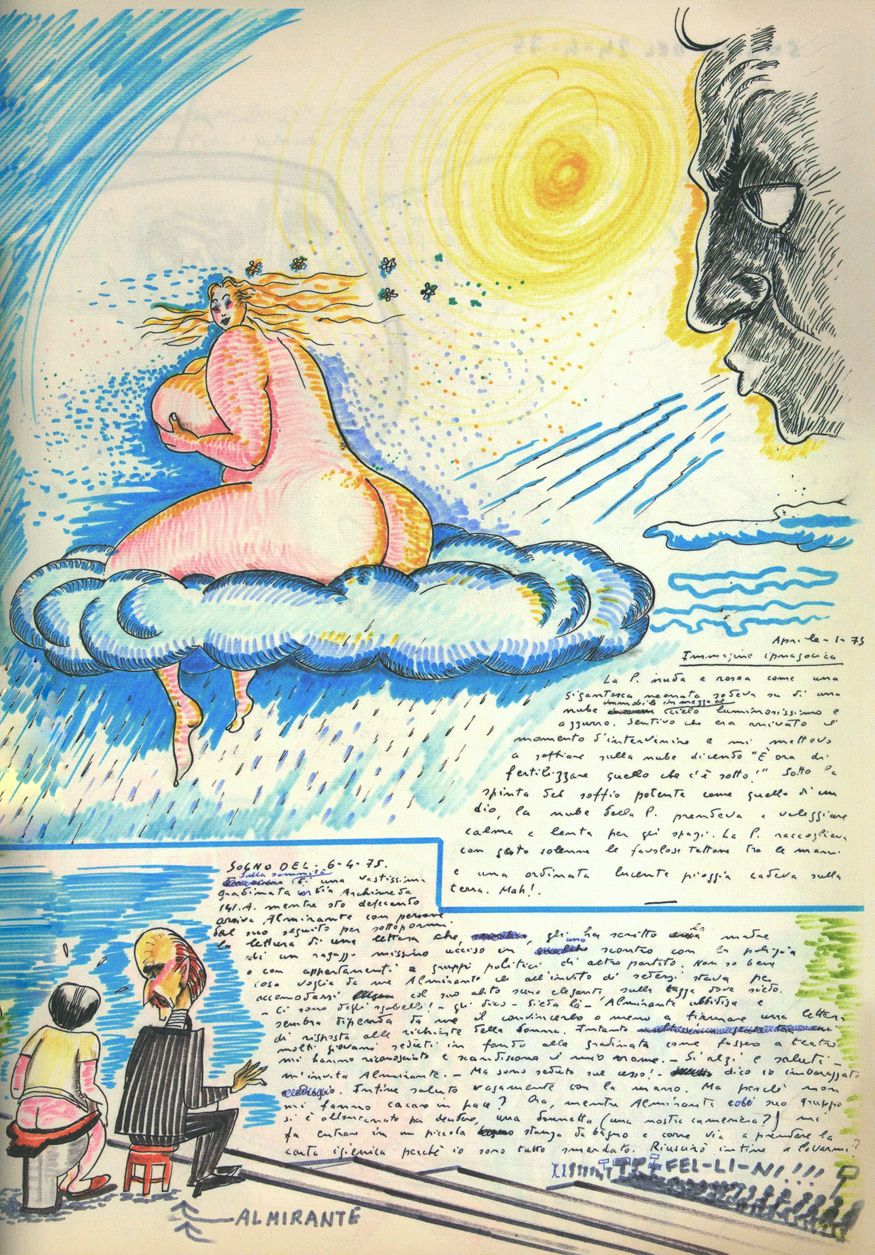 Aprile-1-75
Immagine ipnagogica
La P. nuda e rosea come una
gigantesca neonata sedeva su di una
nube immobile in mezzo al cielo luminosissimo e
azzurro. Sentivo che era arrivato il
momento d'intervenire e mi mettevo
a soffiare sulla nube dicendo "È ora di
fertilizzare quello che c'è sotto!" Sotto la
spinta del soffio potente come quello d'un
dio, la nube della P. prendeva a veleggiare
calma e lenta per gli spazi. La P. raccoglieva
con gesto solenne le favolose tettone tra le mani
e una ordinata lucente pioggia cadeva sulla
terra. Mah!
SOGNO DEL. 6-4-75.
Sulla sommità di una vastissima
gradinata in via Archimede
141.A. mentre sto defecando
arriva Almirante con persone
del suo seguito per sottopormi
la lettura di una lettera che gli ha scritto la madre
di un ragazzo missino ucciso in uno scontro con la polizia
o con appartenenti a gruppi politici di altro partito. Non so bene
cosa voglia da me Almirante che all'invito di sedersi stava per
accomodarsi col suo abito scuro elegante sulla tazza dove siedo.
Ci sono degli sgabelli! - gli dico - Sieda lì - Almirante ubbidisce e
sembra dipenda da me il convincerlo o meno a firmare una lettera
di risposta alle richieste della donna. Intanto
molti giovani seduti in fondo alla gradinata come fossero a teatro
mi hanno riconosciuto e scandiscono il mio nome. - Si alzi e saluti -
m'invita Almirante. - Ma sono seduto sul cesso! - dico io imbarazzato
Infine saluto vagamente con la mano. Ma perché non
mi fanno cacare in pace? Ora, mentre Almirante col suo gruppo
si è allontanato per decidere, una donnetta (una nostra cameriera?) mi
fa entrare in un piccola stanza da bagno e corre via a prendere la
carta igienica perché io sono tutto smerdato. Riuscirò infine a lavarmi?
FEL-LI-NI!!!
ALMIRANTE